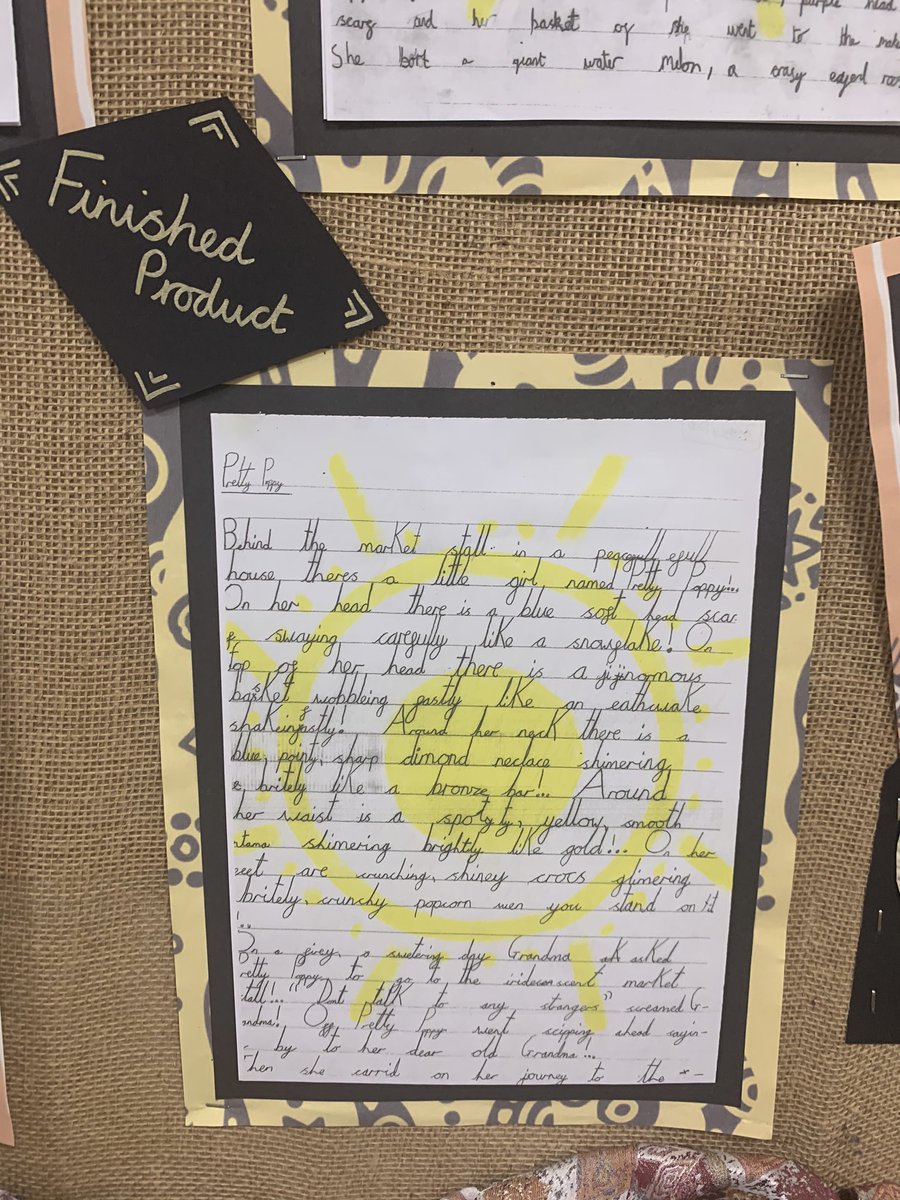 purple head
scarf and her basket of she went to the
She bott a giant water melon, a crazy
Finished
Product
Pretty Poppy
Behind the market stall in a
house theres a little girl named Pretty Poppy!...
On her head there is a blue soft head scar
f swaying carefully like a snowflake! On
top of her head there is a jijinormous
basket wobbleing fastly like an eathwake
shakeing fastly! Around her neck there is a
blue, pointy, sharp dimond neclace shimering
britely like a bronze bar!... Around
her waist is a spotyty, yellow, smooth
shimering brightly like gold!... On her
feet are crunching, shiney crocs glimering
britely, crunchy popcorn wen you stand on it
!..
On a firey, a swetering day Grandma ask asked
retty Poppy to go to the iridescenscent market
tall!.. "Dont talk to any strangers" screamed G-
andma! Off Pretty Poppy went scipping ahead sayin-
by to her dear old Grandma!...
Then she carrid on her journey to the